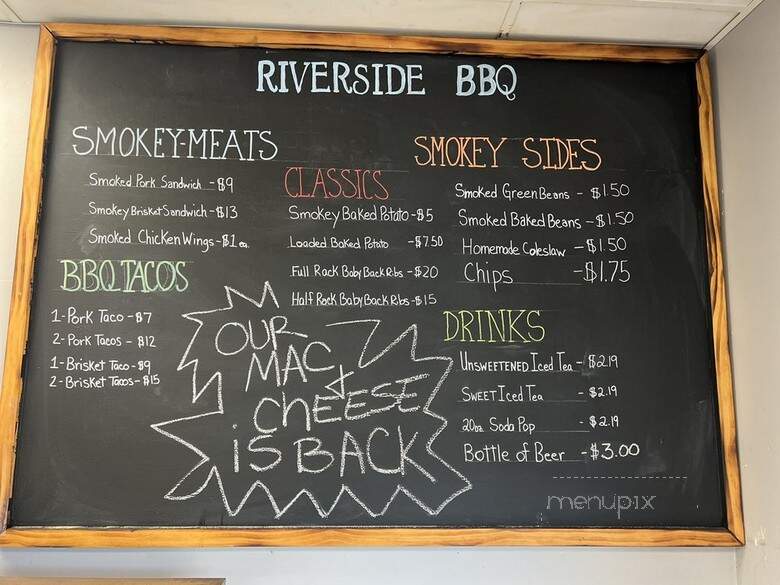 RIVERSIDE BBQ
SMOKEY-MEATS
Smoked Pork Sandwich - $9
Smokey Brisket Sandwich - $13
Smoked Chicken Wings - $1 ea.
BBQ TACOS
1- Pork Taco - $7
2- Pork Tacos - $12
1- Brisket Taco - $9
2- Brisket Tacos - $15
CLASSICS
Smokey Baked Potato - $5
Loaded Baked Potato - $7.50
Full Rack Baby Back Ribs - $20
Half Rack Baby Back Ribs - $15
OUR
MAC &
CHEESE
iS BACK
SMOKEY SIDES
Smoked Green Beans - $1.50
Smoked Baked Beans - $1.50
Homemade Coleslaw - $1.50
Chips - $1.75
DRINKS
UNSWEETENED Iced Tea - $2.19
SWEET Iced Tea - $2.19
20oz Soda Pop - $2.19
Bottle of Beer - $3.00
menupix